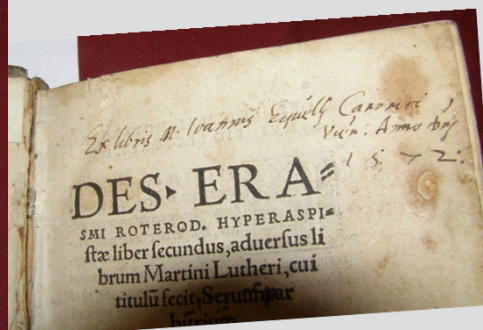 Ex libris M. Ioannis Canonici
Vien: Anno Dnj
1 5 7 2 :
DES· ERA⸗
SMI ROTEROD. HYPERASPI⸗
ſtæ liber ſecundus, aduerſus li
brum Martini Lutheri, cui
titulū fecit, Seruum ar
bitrium